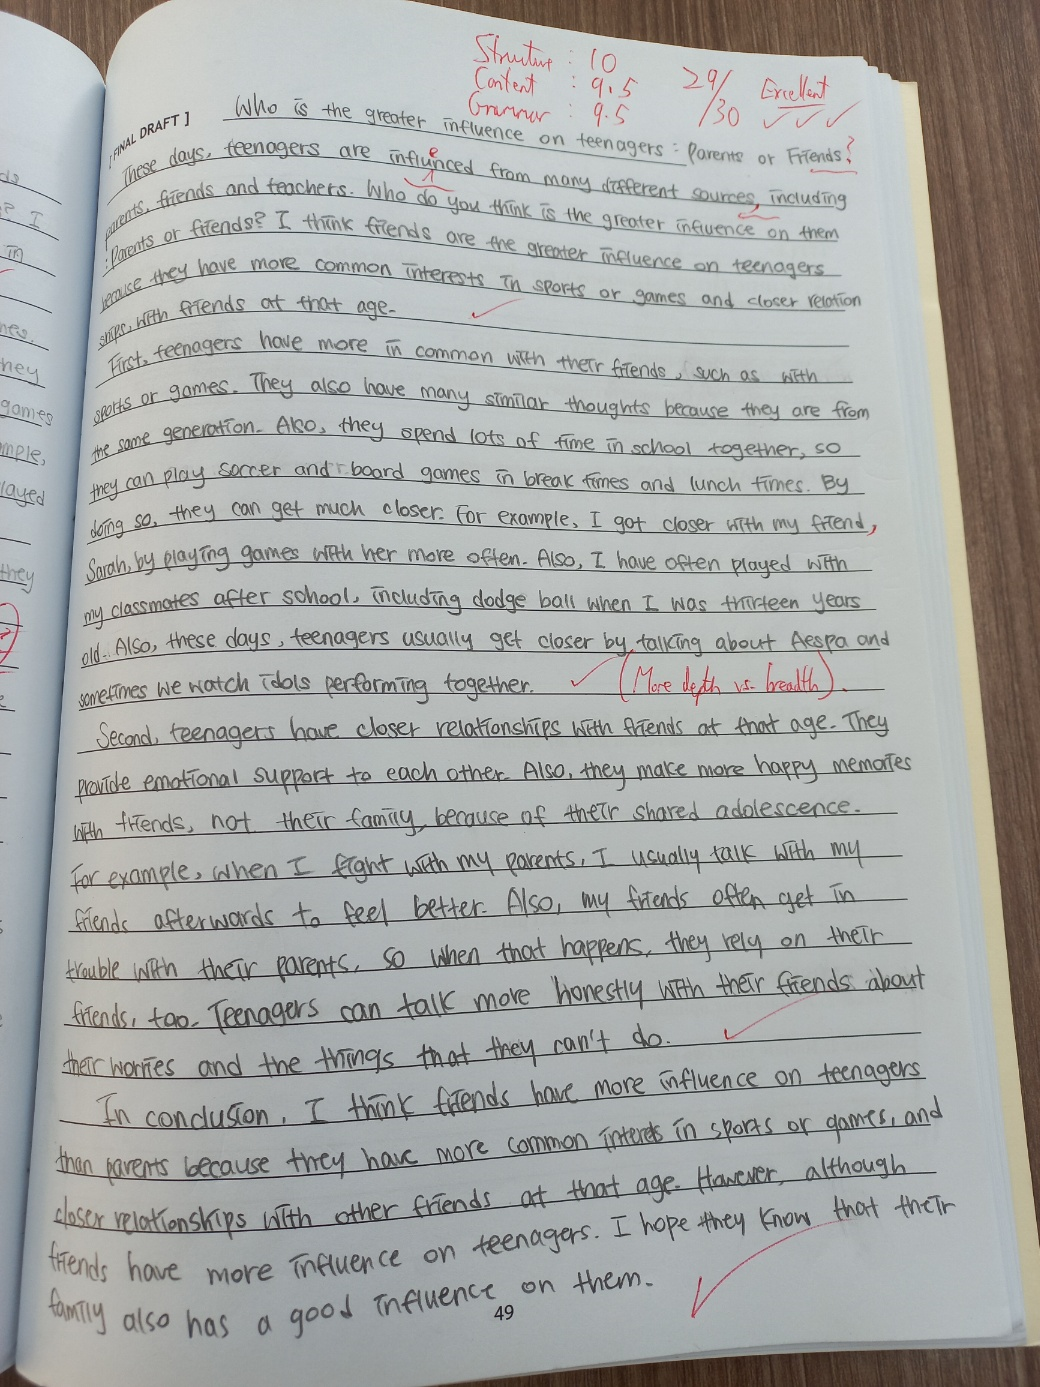 Structure : 10
Content : 9.5
Grammar : 9.5
29/30
Excellent
[FINAL DRAFT]
Who is the greater influence on teenagers : Parents or Friends?
These days, teenagers are influenced from many different sources, including
parents, friends and teachers. Who do you think is the greater influence on them
: Parents or friends? I think friends are the greater influence on teenagers
because they have more common interests in sports or games and closer relation
ships, with friends at that age.
First, teenagers have more in common with their friends, such as with
sports or games. They also have many similar thoughts because they are from
the same generation. Also, they spend lots of time in school together, so
they can play soccer and board games in break times and lunch times. By
doing so, they can get much closer. For example, I got closer with my friend,
Sarah, by playing games with her more often. Also, I have often played with
my classmates after school, including dodge ball when I was thirteen years
old. Also, these days, teenagers usually get closer by talking about Aespa and
sometimes we watch idols performing together.
(More depth vs. breadth).
Second, teenagers have closer relationships with friends at that age. They
provide emotional support to each other. Also, they make more happy memories
with friends, not their family, because of their shared adolescence.
For example, when I fight with my parents, I usually talk with my
friends afterwards to feel better. Also, my friends often get in
trouble with their parents, so when that happens, they rely on their
friends, too. Teenagers can talk more honestly with their friends about
their worries and the things that they can't do.
In conclusion, I think friends have more influence on teenagers
than parents because they have more common interets in sports or games, and
closer relationships with other friends at that age. However, although
friends have more influence on teenagers. I hope they know that their
family also has a good influence on them.
49
? I
in
they
games
layed
they